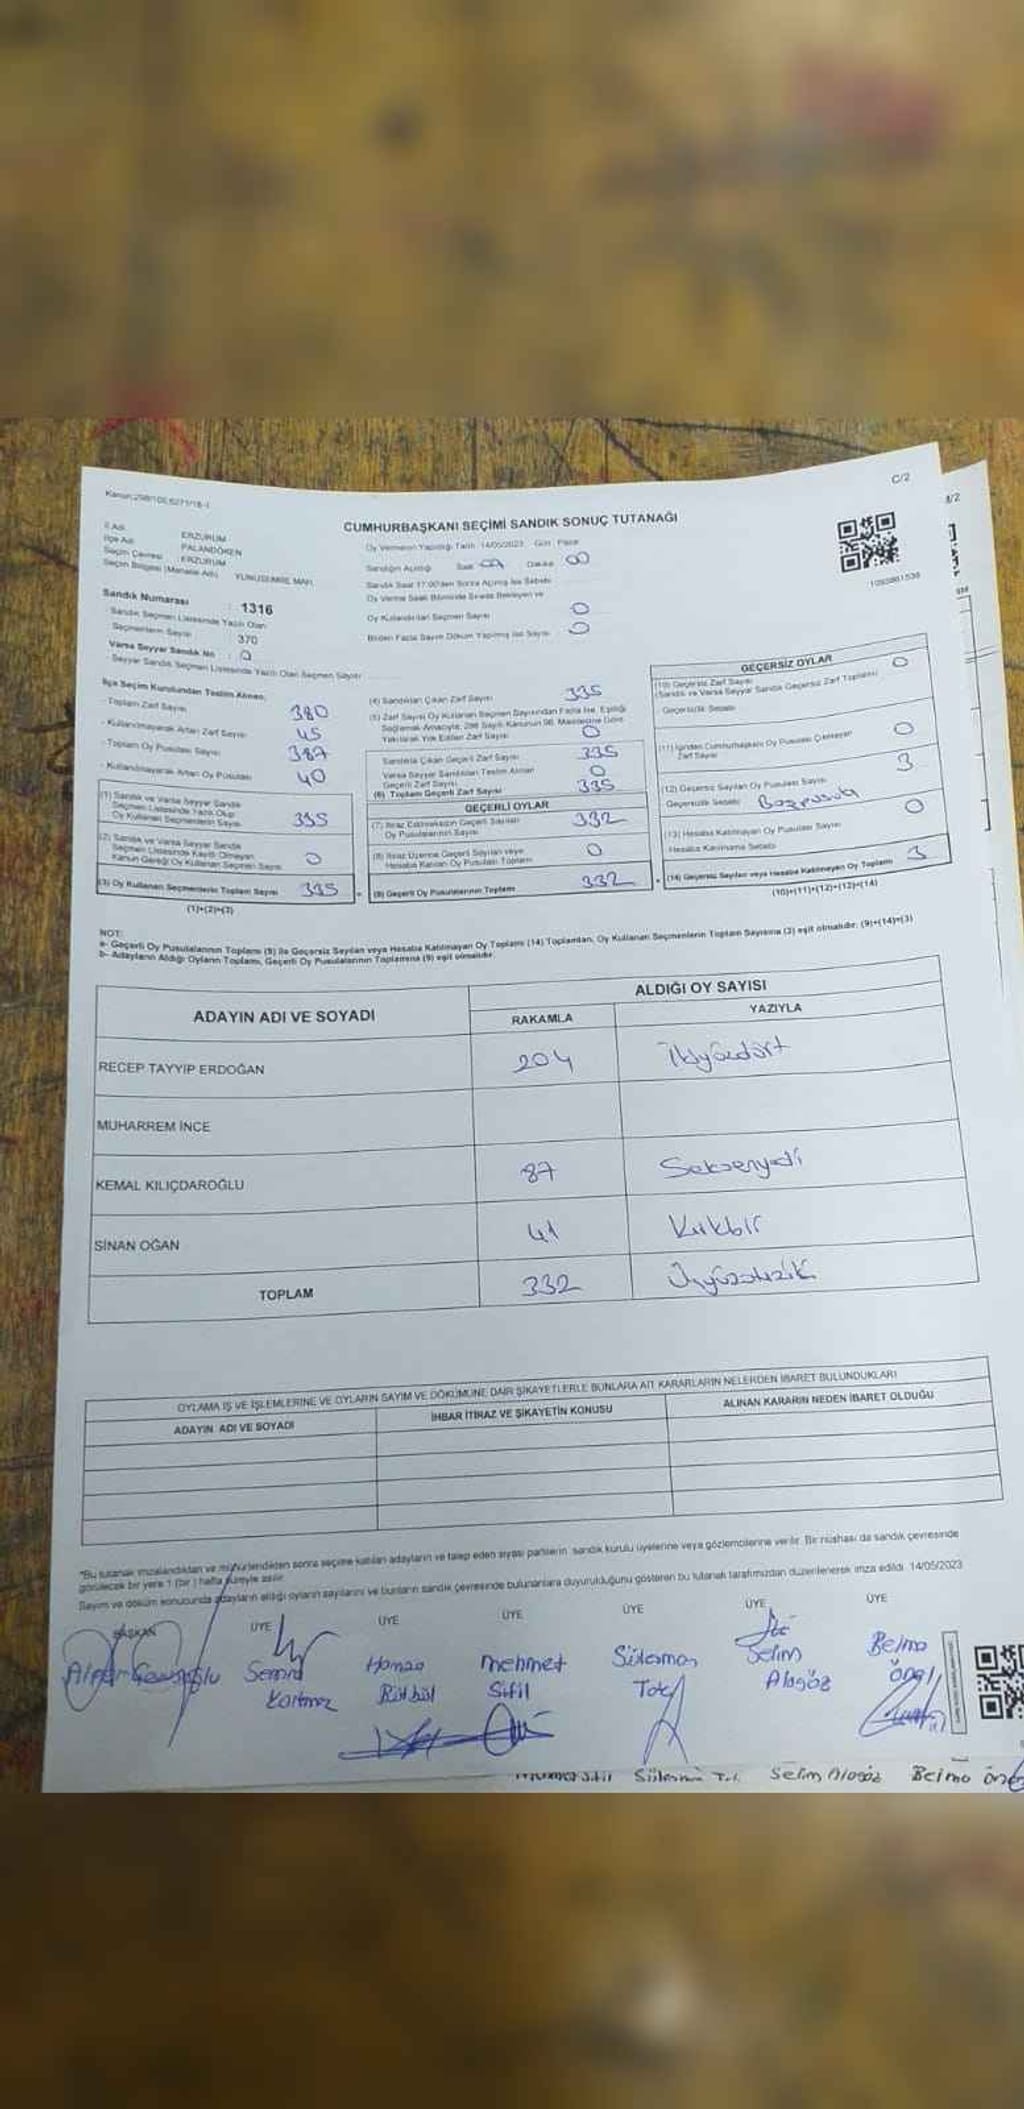 C/2
CUMHURBAŞKANI SEÇİMİ SANDIK SONUÇ TUTANAĞI
İl Adı ERZURUM
İlçe Adı PALANDÖKEN
Seçim Çevresi ERZURUM
Seçim Bölgesi (Mahalle Adı) YUNUSEMRE MAH.
Oy Vermenin Yapıldığı Tarih 14/05/2023 Gün Pazar
Sandığın Açıldığı Saat Dakika 00
Sandık Saat 17:00'den Sonra Açılmış İse Sebebi
Oy Kullandırılan Seçmen Sayısı 0
Birden Fazla Sayım Döküm Yapılmış İse Sayısı 0
Sandık Numarası : 1316
Sandık Seçmen Listesinde Yazılı Olan
Seçmenlerin Sayısı 370
Varsa Seyyar Sandık No : 0
Seyyar Sandık Seçmen Listesinde Yazılı Olan Seçmen Sayısı
İlçe Seçim Kurulundan Teslim Alınan;
- Toplam Zarf Sayısı 380
- Kullanılmayarak Artan Zarf Sayısı 45
- Toplam Oy Pusulası Sayısı 387
- Kullanılmayarak Artan Oy Pusulası 40
(1) Sandık ve Varsa Seyyar Sandık
Seçmen Listesinde Yazılı Olup
Oy Kullanan Seçmenlerin Sayısı 335
(2) Sandık ve Varsa Seyyar Sandık
Seçmen Listesinde Kayıtlı Olmayan
Kanun Gereği Oy Kullanan Seçmen Sayısı 0
(3) Oy Kullanan Seçmenlerin Toplam Sayısı 335
(1)+(2)=(3)
(4) Sandıktan Çıkan Zarf Sayısı 335
(5) Zarf Sayısı Oy Kullanan Seçmen Sayısından Fazla İse, Eşitliği
Sağlamak Amacıyla, 298 Sayılı Kanunun 98. Maddesine Göre
Yakılarak Yok Edilen Zarf Sayısı 0
Sandıkta Çıkan Geçerli Zarf Sayısı 335
Varsa Seyyar Sandıktan Teslim Alınan
Geçerli Zarf Sayısı 0
(6) Toplam Geçerli Zarf Sayısı 335
GEÇERLİ OYLAR
(7) İtiraz Edilmeksizin Geçerli Sayılan
Oy Pusulalarının Sayısı 332
(8) İtiraz Üzerine Geçerli Sayılan veya
Hesaba Katılan Oy Pusulası Toplamı 0
(9) Geçerli Oy Pusulalarının Toplamı 332
GEÇERSİZ OYLAR
(10) Geçersiz Zarf Sayısı 0
(Sandık ve Varsa Seyyar Sandık Geçersiz Zarf Toplamı)
Geçersizlik Sebebi
(11) İçinden Cumhurbaşkanı Oy Pusulası Çıkmayan
Zarf Sayısı 0
(12) Geçersiz Sayılan Oy Pusulası Sayısı 3
Geçersizlik Sebebi
(13) Hesaba Katılmayan Oy Pusulası Sayısı 0
Hesaba Katılmama Sebebi
(14) Geçersiz Sayılan veya Hesaba Katılmayan Oy Toplamı 3
(10)+(11)+(12)+(13)=(14)
NOT:
a- Geçerli Oy Pusulalarının Toplamı (9) ile Geçersiz Sayılan veya Hesaba Katılmayan Oy Toplamı (14) Toplamları, Oy Kullanan Seçmenlerin Toplam Sayısına (3) eşit olmalıdır. (9)+(14)=(3)
b- Adayların Aldığı Oyların Toplamı, Geçerli Oy Pusulalarının Toplamına (9) eşit olmalıdır.
ADAYIN ADI VE SOYADI ALDIĞI OY SAYISI
RAKAMLA YAZIYLA
RECEP TAYYİP ERDOĞAN 204 İkiyüzdört
MUHARREM İNCE
KEMAL KILIÇDAROĞLU 87 Seksenyedi
SİNAN OĞAN 41 Kırkbir
TOPLAM 332 Üçyüzotuziki
OYLAMA İŞ VE İŞLEMLERİNE VE OYLARIN SAYIM VE DÖKÜMÜNE DAİR ŞİKAYETLERLE BUNLARA AİT KARARLARIN NELERDEN İBARET BULUNDUKLARI
ADAYIN ADI VE SOYADI İHBAR İTİRAZ VE ŞİKAYETİN KONUSU ALINAN KARARIN NEDEN İBARET OLDUĞU
*Bu tutanak imzalandıktan ve mühürlendikten sonra seçime katılan adayların ve talep eden siyasi partilerin sandık kurulu üyelerine veya gözlemcilerine verilir. Bir nüshası da sandık çevresinde
görülecek bir yere 1 (bir) hafta süreyle asılır.
Sayım ve döküm sonucunda adayların aldığı oyların sayılarını ve bunların sandık çevresinde bulunanlara duyurulduğunu gösteren bu tutanak tarafımızdan düzenlenerek imza edildi. 14/05/2023
BAŞKAN ÜYE ÜYE ÜYE ÜYE ÜYE ÜYE
Hamza Mehmet Süleyman Selim Belma
Bülbül Sifil Tok Alagöz
Selim Alagöz Belma